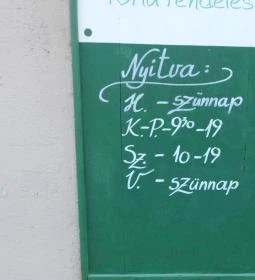 rendelés
Nyitva:
H. - szünnap
K.-P.-9³⁰-19
Sz. - 10-19
V. - szünnap